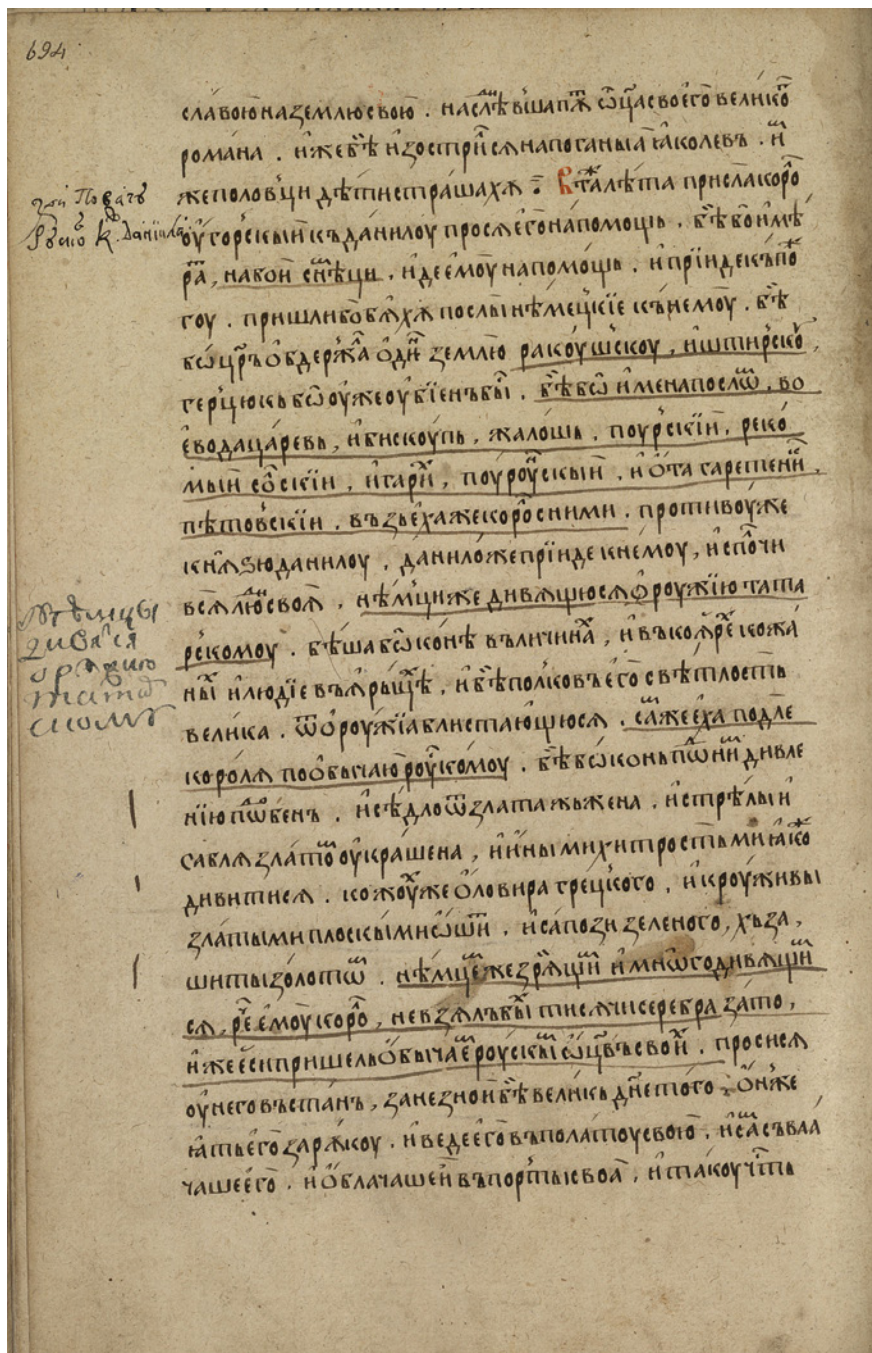 694
сла́вою на землю свою . наслѣвшапѫ ѡ҃ца своего̀ велико̑
рома́на . и́же бѣ̀ и́зостри́лся на поганыа̀ ꙗ́ко левъ . и҆
же половци дѣти страшахѫ : В та̑ лѣ́та присла коро̑
оу́горскый къ дани́лоу просѧ его̀ на помощь . бѣ̀ бо и҆мѣ́
ра̑ , на бои с нѣмци . и́де е́моу на помо́щь . и прїи́де къ по̑
гоу . пришли бо бѧ́хѫ послы нѣмецкїе къ немоу . бѣ̀
бѡ цр҃ъ ѻ҆бдержа̑ ѻ҆дн̑ землю ракоу́шскоу , и штирско̑ ,
герцюкь бѡ оу́же оу́бїенъ бы̑ . бѣ̀ бѡ имена послѡ̑ . во
евода ца́ревь , и́ бискоу́пь , жало́шь . поурскїи , реко́
мый со̑скїи , и́ гари̑ , поу́роу̑скый , и҆ ѻ҆та гаретени̑ ,
пѣтовскїи . въз̾ьеха же коро̑ с ними . противоу же
кнѧзю данилоу . дани́ло же прїи́де к немоу , и́ спо̑чи
всѧ лю̑ своѧ̀ . нѣмци же дивѧщюсѧ ѻ҆роужїю тата
рскомоу . бѣша бѡ ко́нѣ въ личина̑ , и́ въ коѧ̑рѣ кожа́
ны̑ и люд́їе въ ѧ́рыцѣ̑ , и́ бѣ̀ полковъ его̀ свѣтлость
вели́ка . ѿ ѻ҆роу́жїа блистающюсѧ . са̑ же еха по́дле
коро́лѧ по ѻ҆бычаю̀ роу̑комоу . бѣ̀ бѡ конь по̑ ни̑ дивле
нїю по̑бенъ . и́ сѣдло ѿ злата жьжена . и́ стрѣ́лы и҆
саблѧ злато̑ оу́кра́шена , и́ и́ными хитростьми ꙗ́ко̑
дивитисѧ . кожоу̑ же ѻ҆ловира грецкого , и́ кроу́живы
златыми плоскыми ѻ҆ши̑ . и́ са́пози зеленого , хъза ,
шиты зо́лотѡ̑ . нѣмце̑ же зрѧщи̑ и́ мнѡго дивѧщи̑
сѧ , ре̑ е́моу коро̑ , не взѧлъ бы̑ тисѧчи серебра за то ,
и́же еси пришелъ ѻ҆бычае̑ роу́скы̑ ѻ҆ц҃въ свои̑ . просисѧ
оу́ него въ станъ , занезной бѣ̀ великъ дн҃е того . ѻ҆н же
ꙗ́тъ его̀ за рѫ́коу . и́ веде его̀ въ полатоу свою̀ , и́ са̑ съвла
чаше его̀ . и́ ѻ҆блачаше и̑ въ порты своа̀ , и́ такоу чть̑
нѣмцы
дивѧ̑ся
ѻрѫжїю
тата̑
скомꙋ